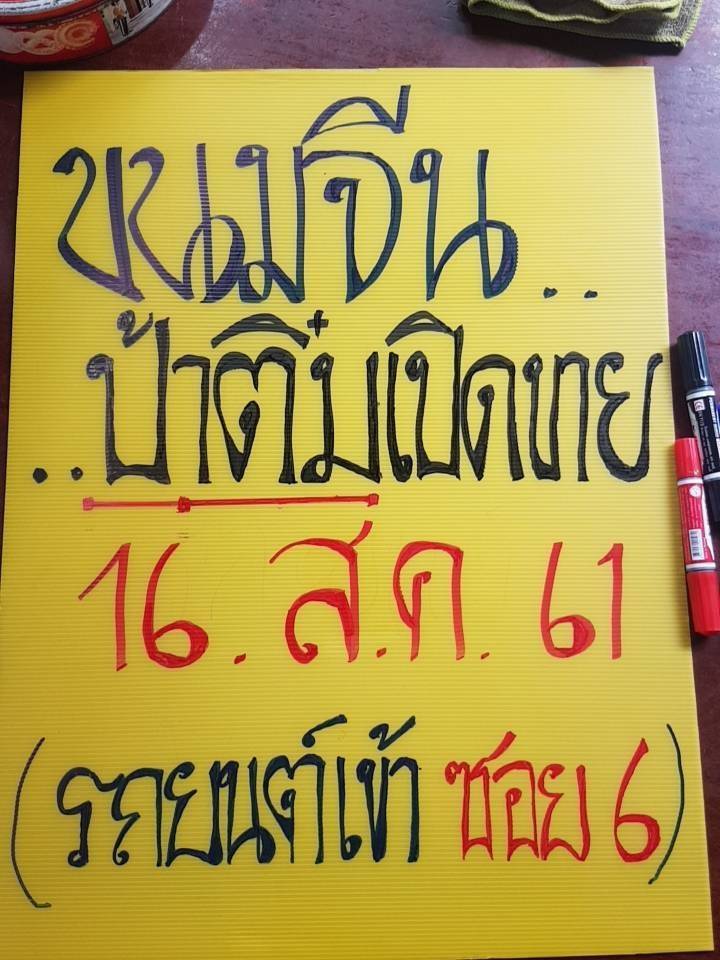 ขนมจีน..
..ป้าติ่มเปิดขาย
16. ส.ค. 61
(รถยนต์เข้า ซอย 6)